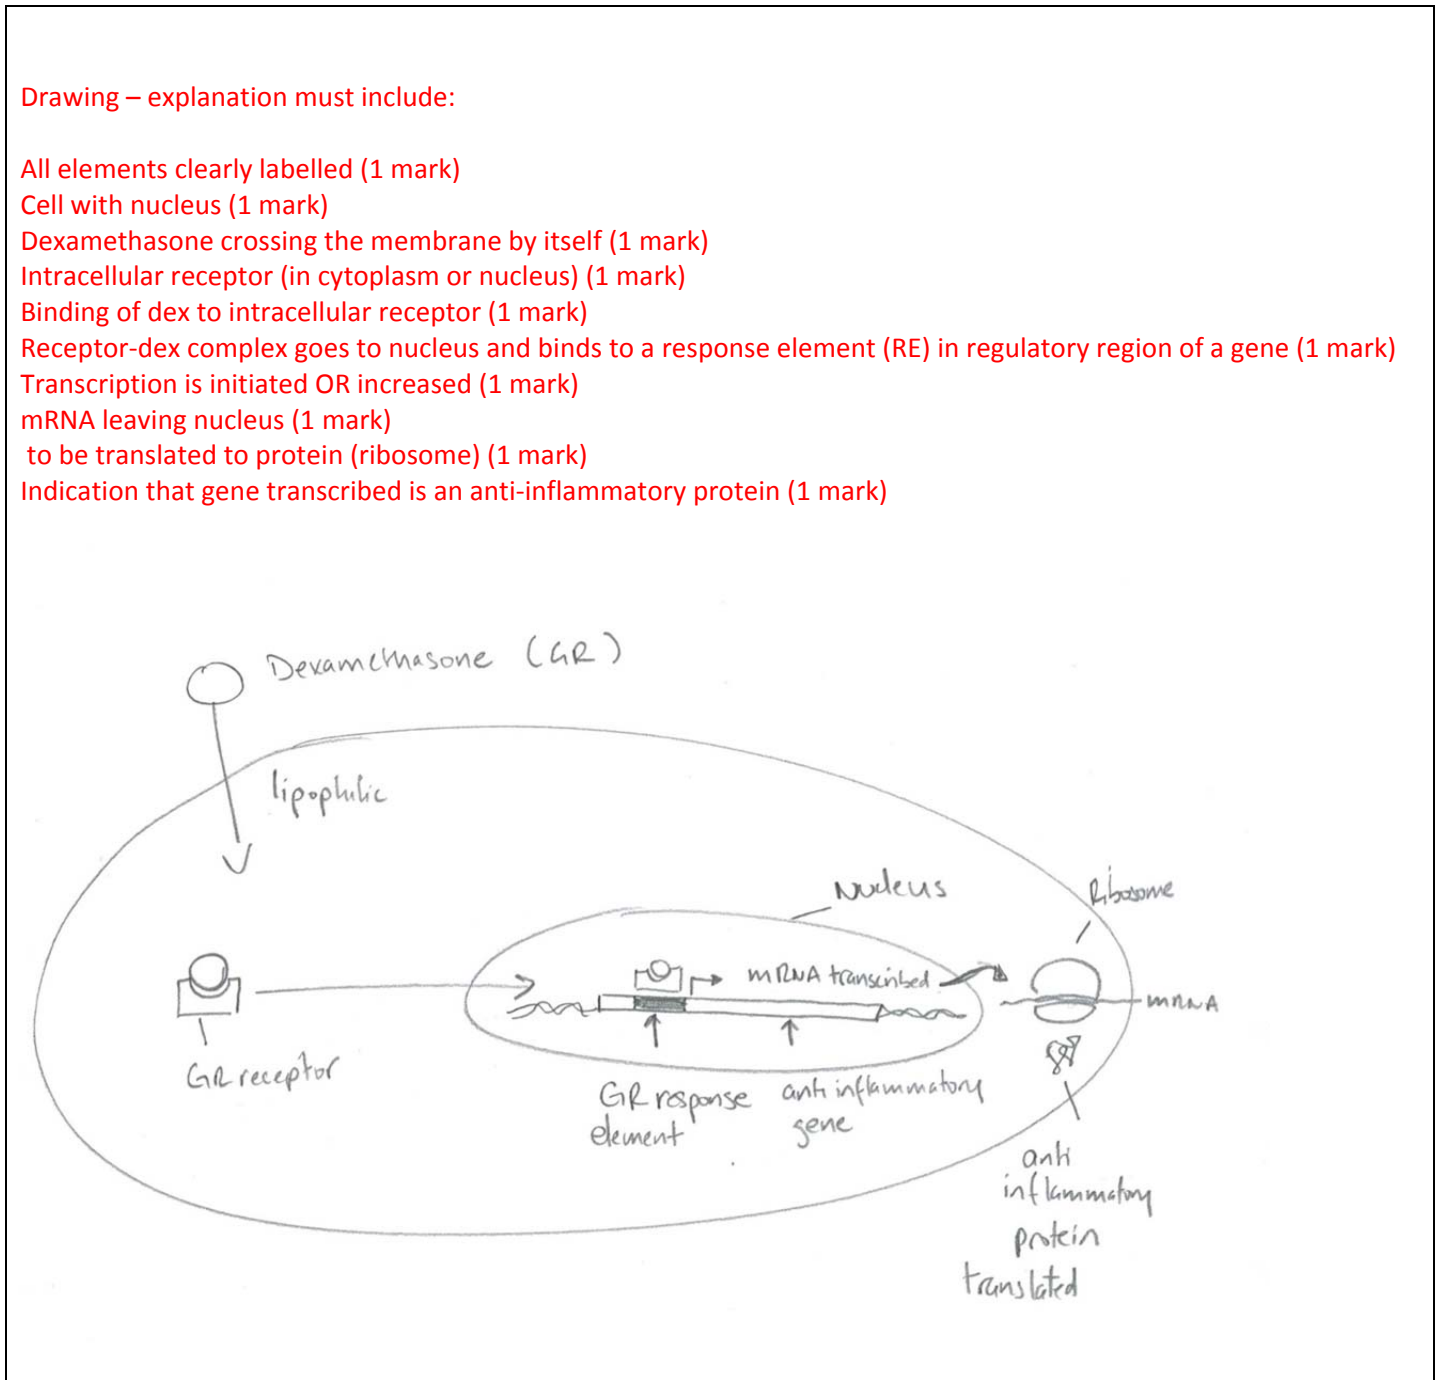 Drawing – explanation must include:
All elements clearly labelled (1 mark)
Cell with nucleus (1 mark)
Dexamethasone crossing the membrane by itself (1 mark)
Intracellular receptor (in cytoplasm or nucleus) (1 mark)
Binding of dex to intracellular receptor (1 mark)
Receptor-dex complex goes to nucleus and binds to a response element (RE) in regulatory region of a gene (1 mark)
Transcription is initiated OR increased (1 mark)
mRNA leaving nucleus (1 mark)
to be translated to protein (ribosome) (1 mark)
Indication that gene transcribed is an anti-inflammatory protein (1 mark)
Dexamethasone (GR)
lipophilic
Nucleus
Ribosome
mRNA transcribed
mRNA
GR receptor
GR response
element
anti inflammatory
gene
anti
inflammatory
protein
translated